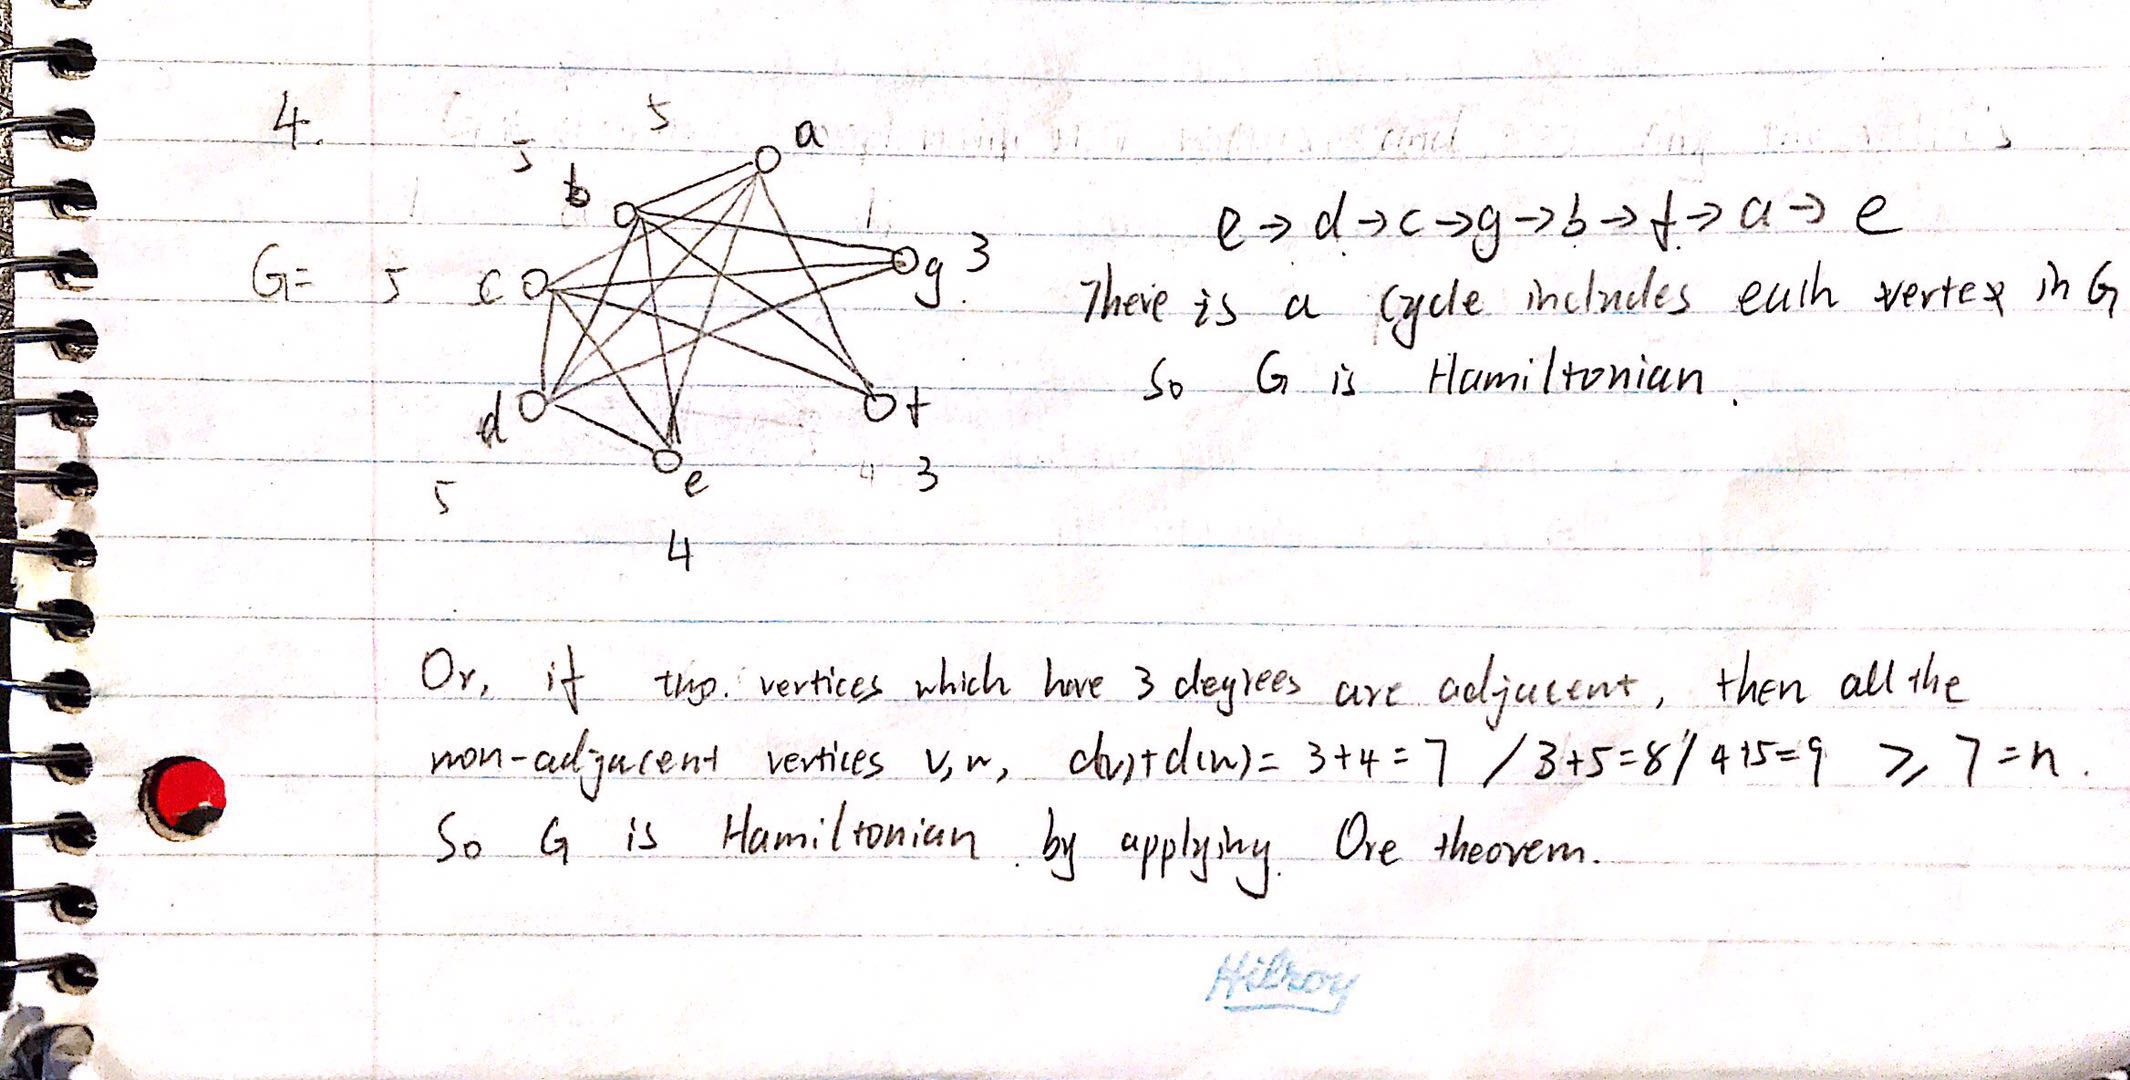 4.
5
5
a
b
G= 5 c
g 3
d
f
e
5
3
4
e → d → c → g → b → f → a → e
There is a cycle includes each vertex in G
So G is Hamiltonian.
Or, if two vertices which have 3 degrees are adjacent, then all the
non-adjacent vertices v, w, d(v)+d(w)= 3+4=7 / 3+5=8 / 4+5=9 ≥ 7=n.
So G is Hamiltonian by applying Ore theorem.
Hilroy